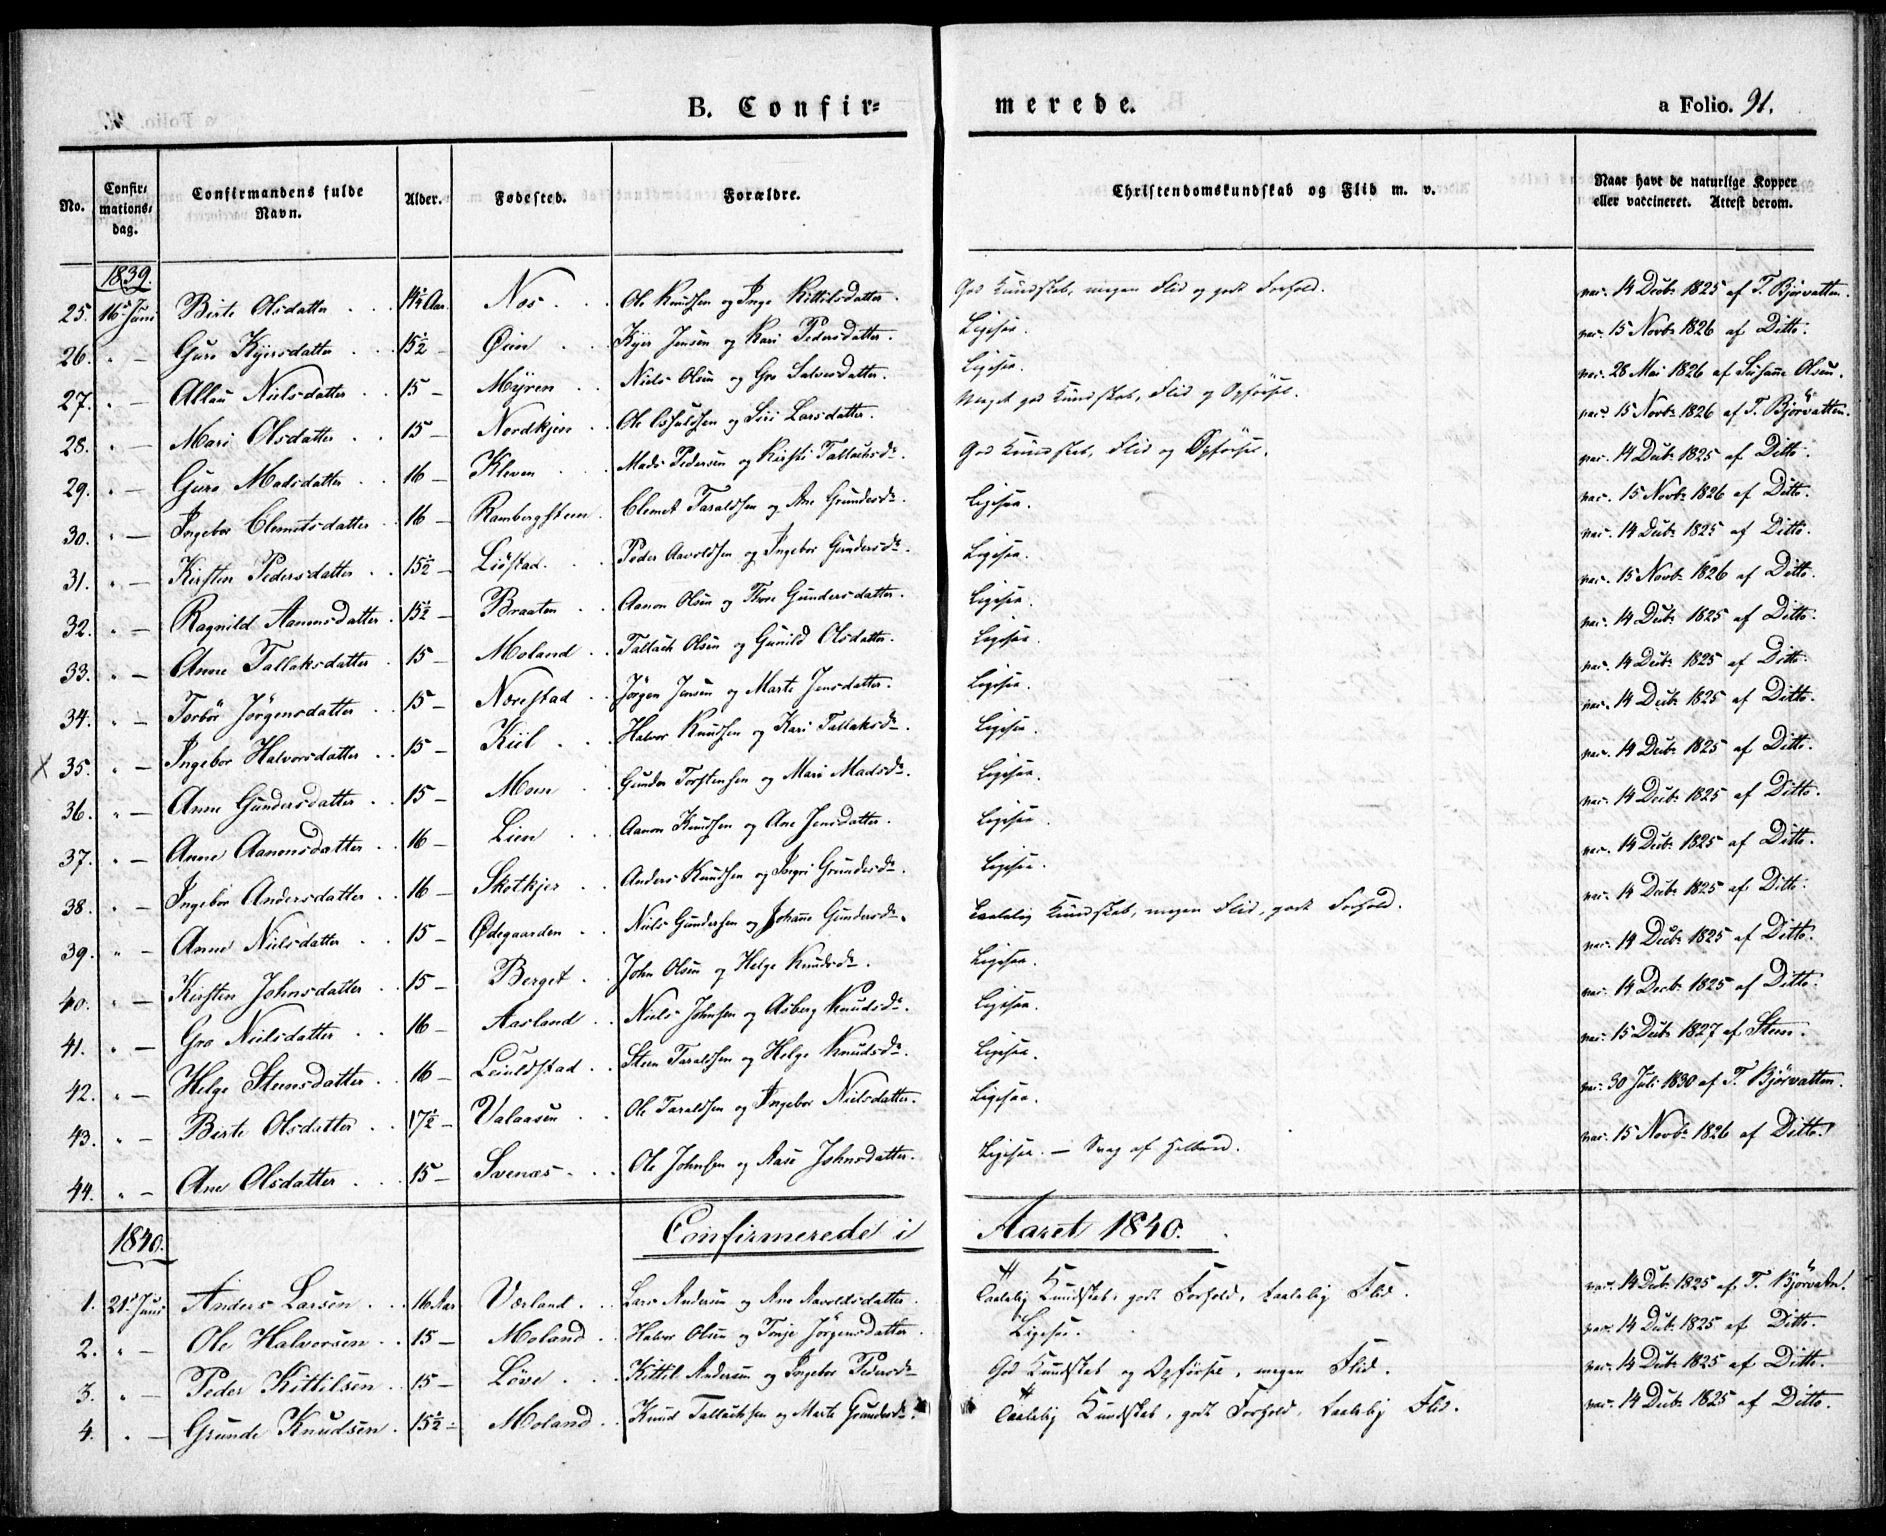 B. Confir= merede. a Folio. 91.
No. Confir= mations= dag. Confirmandens fulde Navn. Alder. Fødested. Forældre. Christendomskundskab og Flid m. v. Naar havt de naturlige Kopper eller vaccineret. Attest derom.
1839.
25. 16de Juni Birte Olsdatter 14½ Aar. Næs Ole Knudsen og Inge Kittilsdatter. God Kundskab, megen Flid og godt Forhold. vac. 14 Decbr 1825 af T. Bjørvatten.
26. " — Guro Kyersdatter 15½ — Øien Kyer Jensen og Kari Pedersdatter. Ligesaa. vac. 15 Novbr 1826 af Ditto.
27. " — Nielsdatter 15 — Myren Niels Olsen og Gro Salvesdatter. Ligesaa. vac. 28 Mai 1826 af Susanne Olsen.
28. " — Mari Olsdatter 15 — Nordkjen Ole Osuldsen og Siri Larsdatter. Meget god Kundskab, Flid og Opførsel. vac. 15 Novbr 1826 af T. Bjørvatten.
29. " — Guro Madsdatter 16 — Kleven Mads Pedersen og Kirsti Tallachsdr. God Kundskab, Flid og Opførsel. vac. 14 Decbr 1825 af Ditto.
30. " — Ingebor Clemetsdatter 16 — Rambergsteen Clemet Taraldsen og Ane Grundesdr. Ligesaa. vac. 15 Novbr 1826 af Ditto.
31. " — Kirsten Pedersdatter 15½ — Liøstad Peder Aavoldsen og Ingebor Gundersdr. Ligesaa. vac. 14 Decbr 1825 af Ditto.
32. " — Ragnild Aanonsdatter 15½ — Braaten Aanon Olsen og Thore Gundersdatter. Ligesaa. vac. 15 Novbr 1826 af Ditto.
33. " — Anne Tallaksdatter 15 — Moland Tallach Olsen og Gunild Olsdatter. Ligesaa. vac. 14 Decbr 1825 af Ditto.
34. " — Torbör Jörgensdatter 15 — Nærestad Jörgen Jensen og Marte Jensdatter. Ligesaa. vac. 14 Decbr 1825 af Ditto.
X 35. " — Ingebor Halvorsdatter 15 — Kiil Halvor Knudsen og Kari Tallaksdr. Ligesaa. vac. 14 Decbr 1825 af Ditto.
36. " — Anne Gundersdatter 15 — Moen Gunder Torstensen og Mari Madsdr. Ligesaa. vac. 14 Decbr 1825 af Ditto.
37. " — Anne Aanonsdatter 16 — Lien Aanon Knudsen og Ane Jensdatter. Ligesaa. vac. 14 Decbr 1825 af Ditto.
38. " — Ingebor Andersdatter 16 — Skotkjer Anders Knudsen og Ingri Grundesdr. Ligesaa. vac. 14 Decbr 1825 af Ditto.
39. " — Anne Nielsdatter 15 — Ødegaarden Niels Gundersen og Johanne Gundersdr. Taalelig Kundskab, megen Flid, godt Forhold. vac. 14 Decbr 1825 af Ditto.
40. " — Kirsten Johnsdatter 15 — Berget John Olsen og Helge Knudsdr. Ligesaa. vac. 14 Decbr 1825 af Ditto.
41. " — Gro Nielsdatter 16 — Aasland Niels Johnsen og Asberg Knudsdr. Ligesaa. vac. 14 Decbr 1825 af Ditto.
42. " — Helge Steensdatter 16 — Leiuldstad Steen Taraldsen og Helge Knudsdr. Ligesaa. vac. 15 Decbr 1827 af Steen.
43. " — Birte Olsdatter 17½ — Valaasen Ole Taraldsen og Ingebor Nielsdatter. Ligesaa. vac. 30 Juli 1830 af T. Bjørvatten.
44. " — Ane Olsdatter 15 — Svenæs Ole Johnsen og Aase Johnsdatter. Ligesaa. — Svag af Helbred. vac. 15 Novbr 1826 af Ditto.
1840. Confirmerede i Aaret 1840.
1. 21de Juni Anders Larsen 16 Aar Værland Lars Andersen og Ane Aavoldsdatter. Taalelig Kundskab, godt Forhold, taalelig Flid. vac. 14 Decbr 1825 af T. Bjørvatn.
2. " — Ole Halvorsen 15 — Moland Halvor Olsen og Tonje Jörgensdatter. Ligesaa. vac. 14 Decbr 1825 af Ditto.
3. " — Peder Kittilsen 15 — Löve Kittil Andersen og Ingebor Pedersdr God Kundskab og Opførsel, megen Flid. vac. 14 Decbr 1825 af Ditto.
4. " — Grunde Knudsen 15½ — Moland Knud Tallachsen og Marte Grundesdr. Taalelig Kundskab, godt Forhold, taalelig Flid. vac. 14 Decbr 1825 af Ditto.